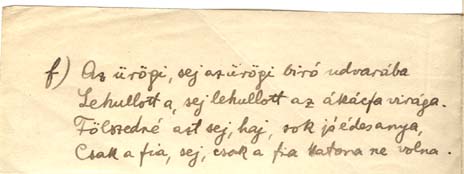 f) Az ürögi, sej az ürögi biró udvarába
Lehullott a, sej lehullott az ákácfa virága.
Fölszedné azt sej, haj, sok jó édesanya,
Csak a fia, sej, csak a fia katona ne volna.